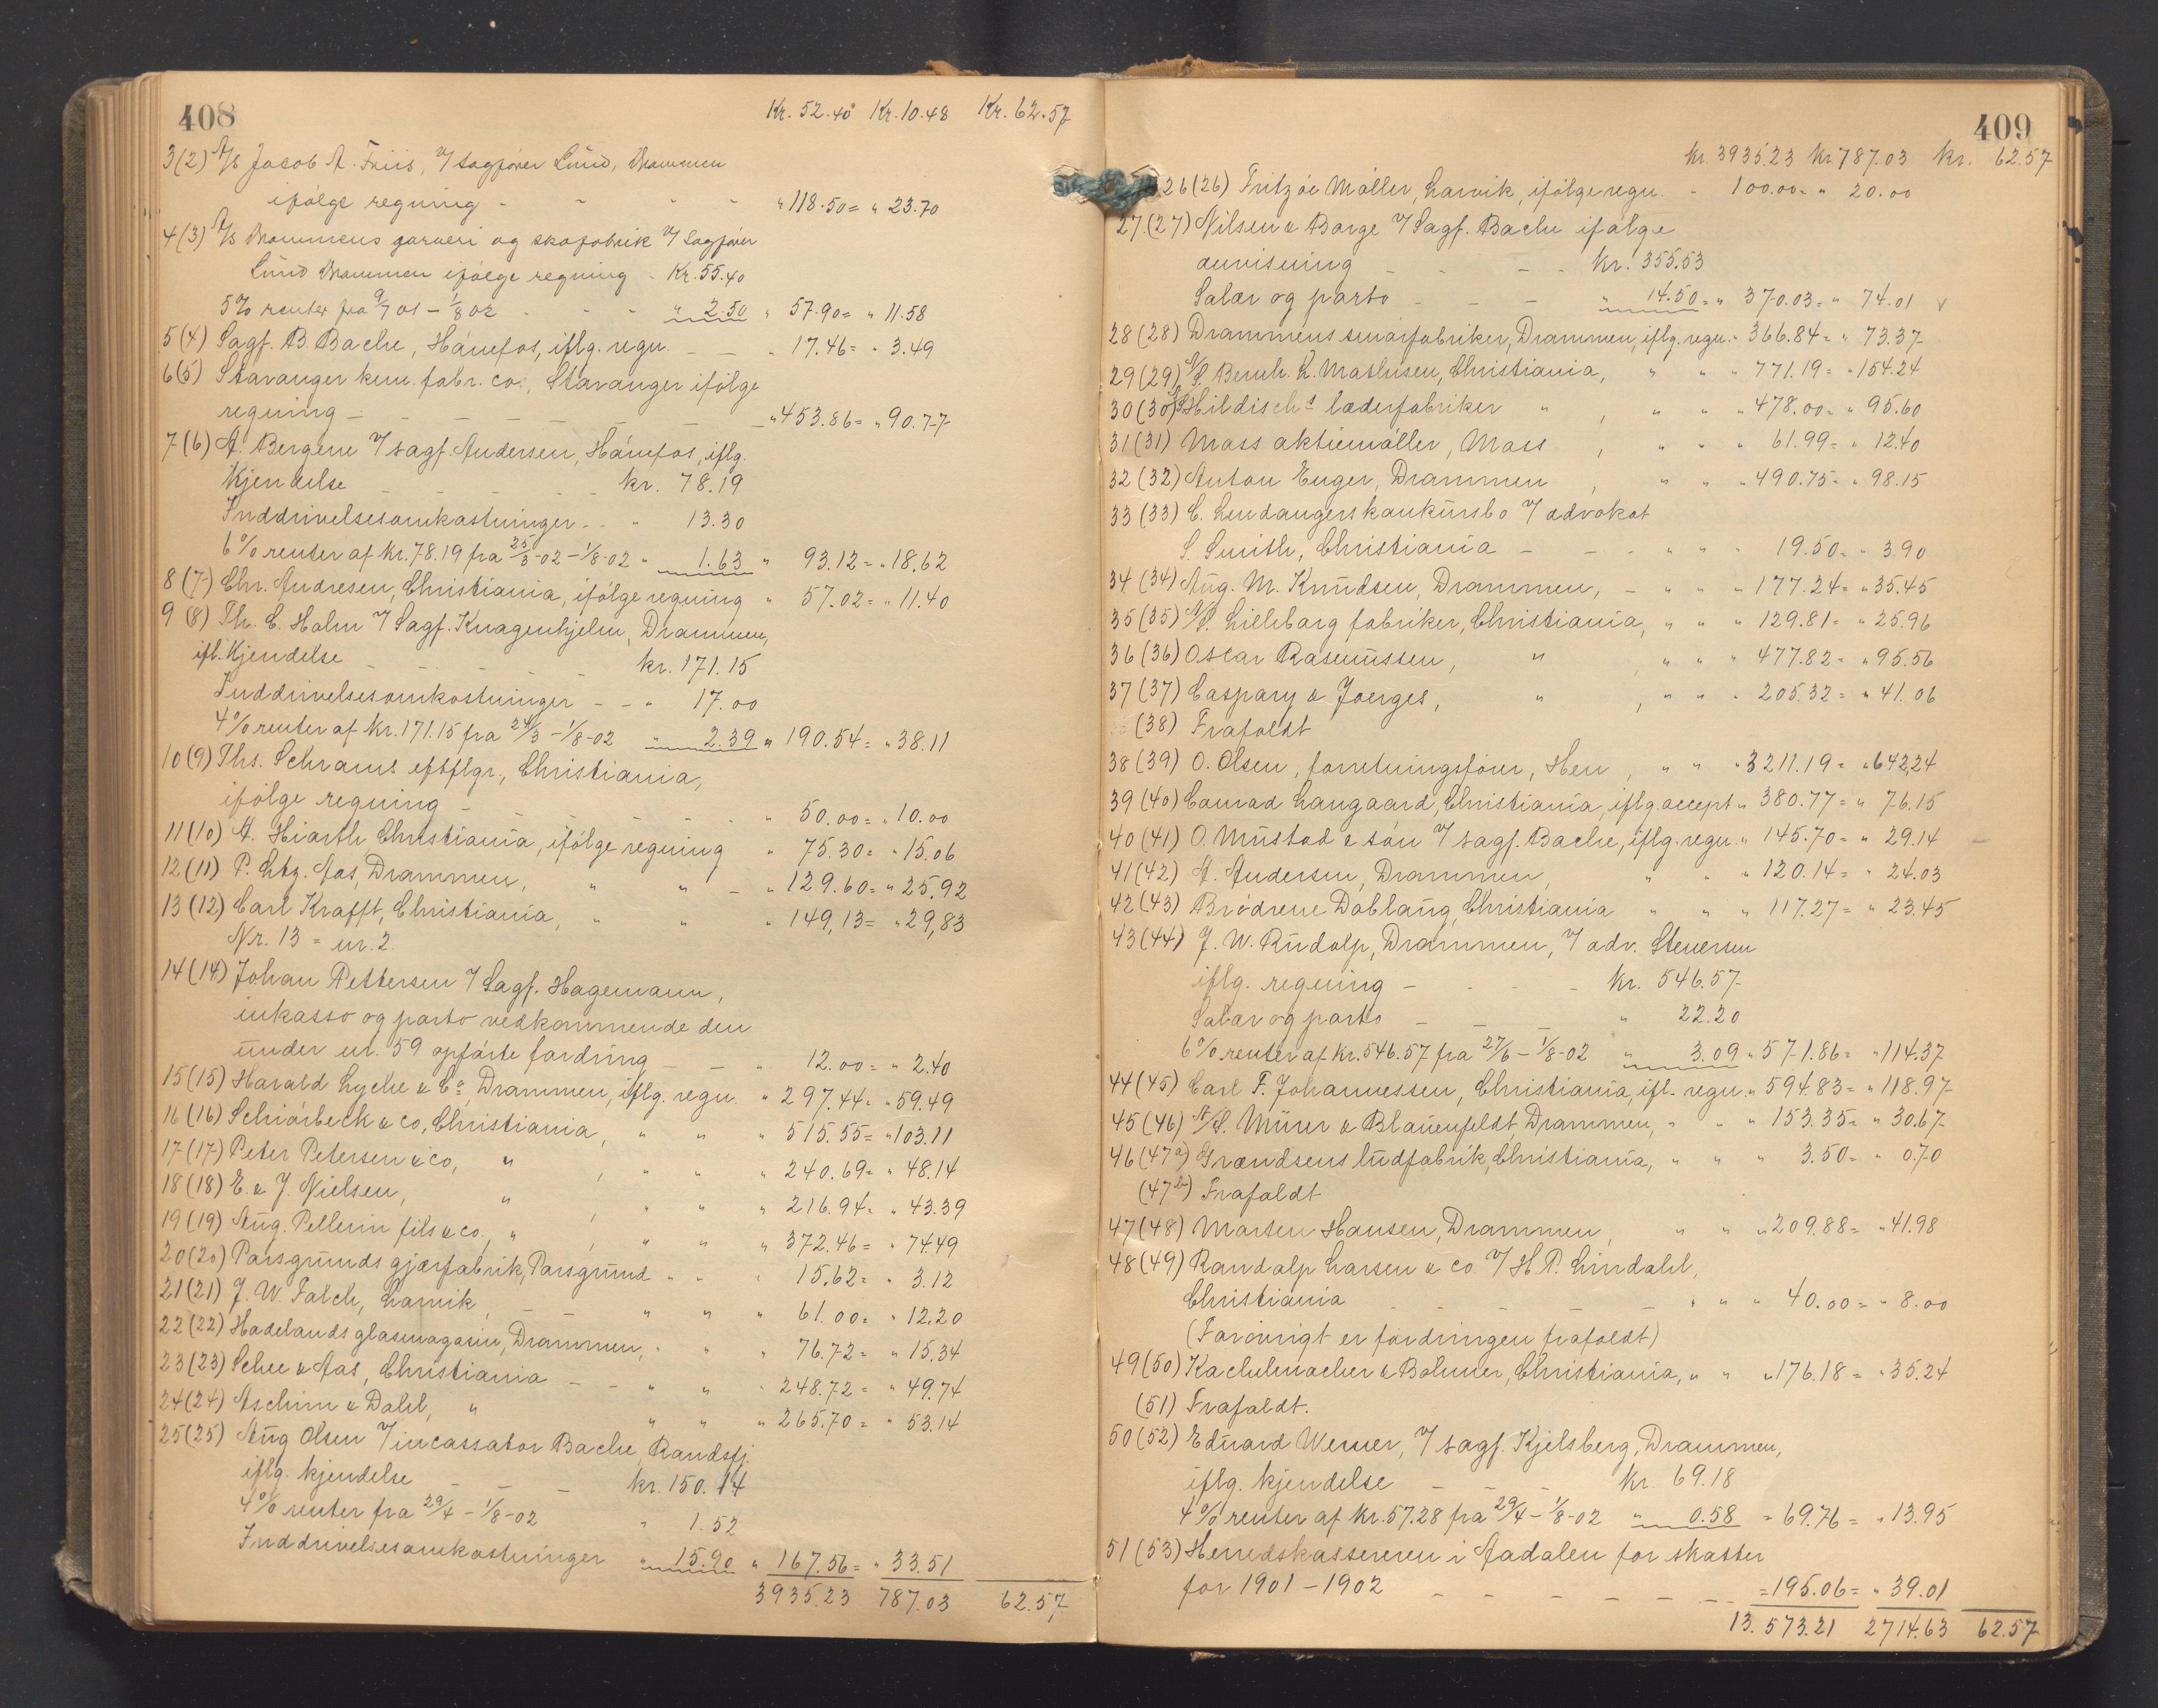 408
Kr. 52.40 Kr. 10.48 Kr. 62.57
3(2) A/S Jacob A. Friis, v/ sagfører Lund, Drammen
ifølge regning - - - - " 118.50 = " 23.70
4(3) A/S Drammens garveri og skofabrik v/ Sagfører
Lund Drammen ifølge regning - Kr. 55.40
5% renter fra 9/7 01 - 1/8 02 - - - " 2.50 " 57.90 = " 11.58
5(4) Sagf. B. Bache, Hønefos, iflg. regn. - - " 17.46 = " 3.49
6(5) Stavanger kem. fabr. co., Stavanger ifølge
regning - - - - - - - " 453.86 = " 90.77
7(6) A. Bergene v/ sagf. Andersen, Hønefos, iflg.
Kjendelse - - - - - kr. 78.19
Inddrivelsesomkostninger - - " 13.30
6% renter af Kr. 78.19 fra 25/3-02 - 1/8-02 " 1.63 " 93.12 = " 18.62
8(7) Chr. Andresen, Christiania, ifølge regning " 57.02 = " 11.40
9(8) Th. C. Holm v/ Sagf. Knagenhjelm, Drammen,
ifl. Kjendelse - - - - kr. 171.15
Inddrivelsesomkostninger - - " 17.00
4% renter af Kr. 171.15 fra 24/3 - 1/8-02 " 2.39 " 190.54 = " 38.11
10(9) Ths. Schrams eftflgr., Christiania,
ifølge regning - - - - - - " 50.00 = " 10.00
11(10) A. Hiorth Christiania, ifølge regning " 75.30 = " 15.06
12(11) P. Ltz. Aas, Drammen, " " - " 129.60 = " 25.92
13(12) Carl Krafft, Christiania, " " " 149,13 = " 29,83
Nr. 13 = nr. 2.
14(14) Johan Pettersen v/ Sagf. Hagemann,
inkasso og porto vedkommende den
under nr. 59 opførte fordring - - " 12.00 = " 2.40
15(15) Harald Lyche & Co, Drammen, iflg. regn. " 297.44 = " 59.49
16(16) Schiørbeck & co, Christiania, " " " 515.55 = " 103.11
17(17) Peter Petersen & co, " , " " " 240.69 = " 48.14
18(18) E. & J. Nielsen, " , " " " 216.94 = " 43.39
19(19) Aug. Pellerin fils & co., " , " " " 372.46 = " 74.49
20(20) Porsgrunds gjærfabrik, Porsgrund " " " 15.62 = " 3.12
21(21) J. W. Falch, Larvik, - - " " " 61.00 = " 12.20
22(22) Hadelands glasmagasin, Drammen, " " " 76.72 = " 15.34
23(23) Schee & Aas, Christiania - - " " " 248.72 = " 49.74
24(24) Aschim & Dahl, " " " " 265.70 = " 53.14
25(25) Aug Olsen v/ incassator Bache, Randsfj.
iflg. kjendelse - - - kr. 150.14
4% renter fra 29/4 - 1/8-02 " 1.52
Inddrivelsesomkostninger " 15.90 " 167.56 = " 33.51
3935.23 787.03 62.57
409
Kr. 3935.23 Kr. 787.03 Kr. 62.57
26(26) Fritzøe Møller, Larvik, ifølge regn. - 100.00 = " 20.00
27(27) Nilsen & Borge v/ Sagf. Bache ifølge
anvisning - - - - kr. 355.53
Salær og porto - - - " 14.50 = " 370.03 = " 74.01 v
28(28) Drammens smørfabriker, Drammen, iflg. regn. " 366.84 = " 73.37
29(29) A/S. Bernh. L. Mathisen, Christiania, " " " 771.19 = " 154.24
30(30) A/S Hildisch's læderfabriker " , " " " 478.00 = " 95.60
31(31) Moss aktiemøller, Moss , " " " 61.99 = " 12.40
32(32) Anton Enger, Drammen , " " " 490.75 = " 98.15
33(33) C. Lendangers konkursbo v/ advokat
S. Smith, Christiania - - - " " " 19.50 = " 3.90
34(34) Aug. M. Knudsen, Drammen, - " " " 177.24 = " 35.45
35(35) A/S. Lilleborg fabriker, Christiania, " " " 129.81 = " 25.96
36(36) Oscar Rasmussen, " , " " " 477.82 = " 95.56
37(37) Caspary & Joerges, " , " " " 205.32 = " 41.06
(38) Frafaldt
38(39) O. Olsen, forretningsfører, Hen , " " " 3211.19 = " 642,24
39(40) Conrad Langaard, Christiania, iflg. accept " 380.77 = " 76.15
40(41) O. Mustad & søn v/ sagf. Bache, iflg. regn. " 145.70 = " 29.14
41(42) A. Andersen, Drammen, " " " 120.14 = " 24.03
42(43) Brødrene Dobloug, Christiania " " " 117.27 = " 23.45
43(44) J. W. Rudolp, Drammen, v/ adv. Stenersen
iflg. regning - - - - kr. 546.57
Salær og porto - - - " 22.20
6% renter af Kr. 546.57 fra 27/6 - 1/8-02 " 3.09 " 571.86 = " 114.37
44(45) Carl F. Johannessen, Christiania, ifl. regn. " 594.83 = " 118.97
45(46) A/S. Mürer & Blauenfeldt, Drammen, " " " 153.35 = " 30.67
46(47a) Grændsens ludfabrik, Christiania, " " " 3.50 = " 0.70
(47b) Frafaldt
47(48) Morten Hansen, Drammen, " " " 209.88 = " 41.98
48(49) Randolp Larsen & co v/ H. P. Lindahl,
Christiania - - - - - " " " 40.00 = " 8.00
(Forøvrigt er fordringen frafaldt)
49(50) Kachelmacher & Bohmer, Christiania, " " " 176.18 = " 35.24
(51) Frafaldt.
50(52) Eduard Werner, v/ sagf. Kjelsberg, Drammen,
iflg. kjendelse - - - kr. 69.18
4% renter af Kr. 57.28 fra 29/4 - 1/8-02 " 0.58 = 69.76 = " 13.95
51(53) Herredskassereren i Aadalen for skatter
for 1901-1902 - - - - - - = 195.06 = " 39.01
13.573.21 2714.63 62.57